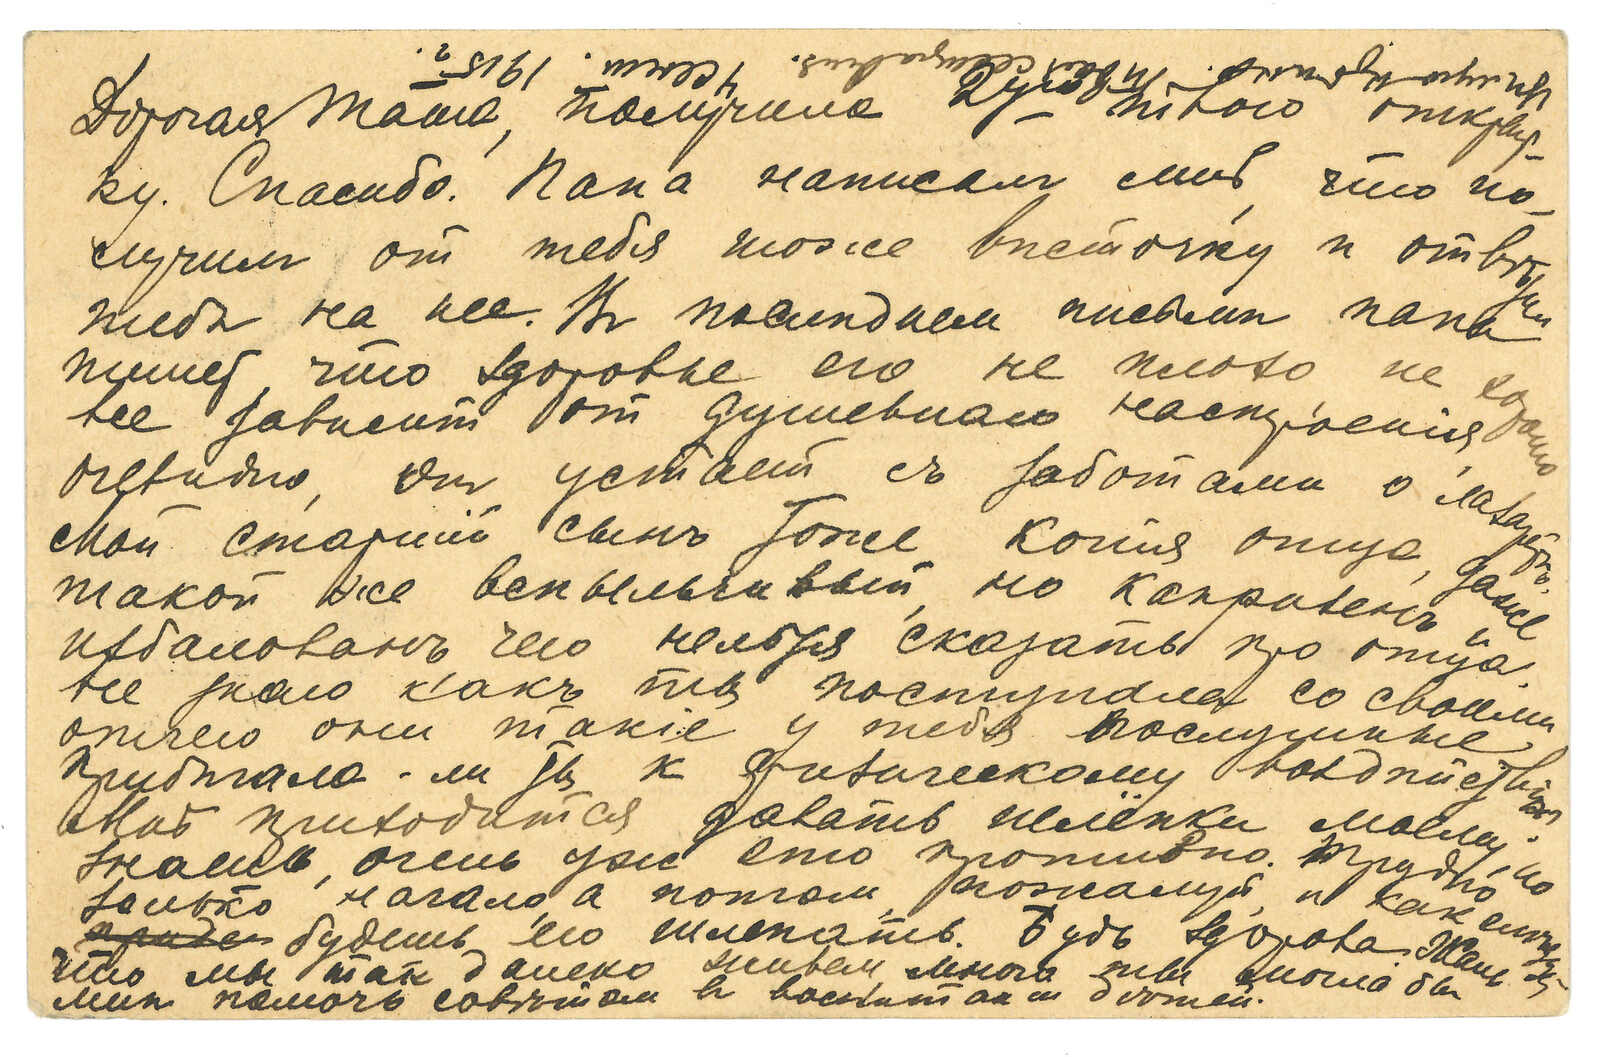 Дорогая Таша, получила 2ую твою открыт-
ку. Спасибо. Папа написалъ мнѣ, что по-
лучилъ от тебя тоже весточку и отвѣтил
тебѣ на нее. Въ последнем письмѣ папа
пишет, что здоровье его не плохо не хорошо
все зависит от душевнаго настроенія,
очевидно, он устает съ заботами о лазаретѣ.
Мой старшій сынъ тоже копія отца, даже
такой же вспыльчивый, но капризенъ и
избалованъ чего нельзя сказать про отца.
Не знаю какъ ты поступала со своими
отчего они такіе у тебя послушные,
прибѣгала-ли ты к физическому воздѣйствію.
Мнѣ приходится давать шлёпки моему, но
знаешь, очень уж это противно. Трудно
только начало, а потом, пожалуй, и как
будешь его шлепать. Будь здорова. Жаль
что мы так далеко живем много ты могла бы
мнѣ помочь совѣтом в воспитаніи дѣтей.
Цѣлую крѣпко. Твоя
1915 г.